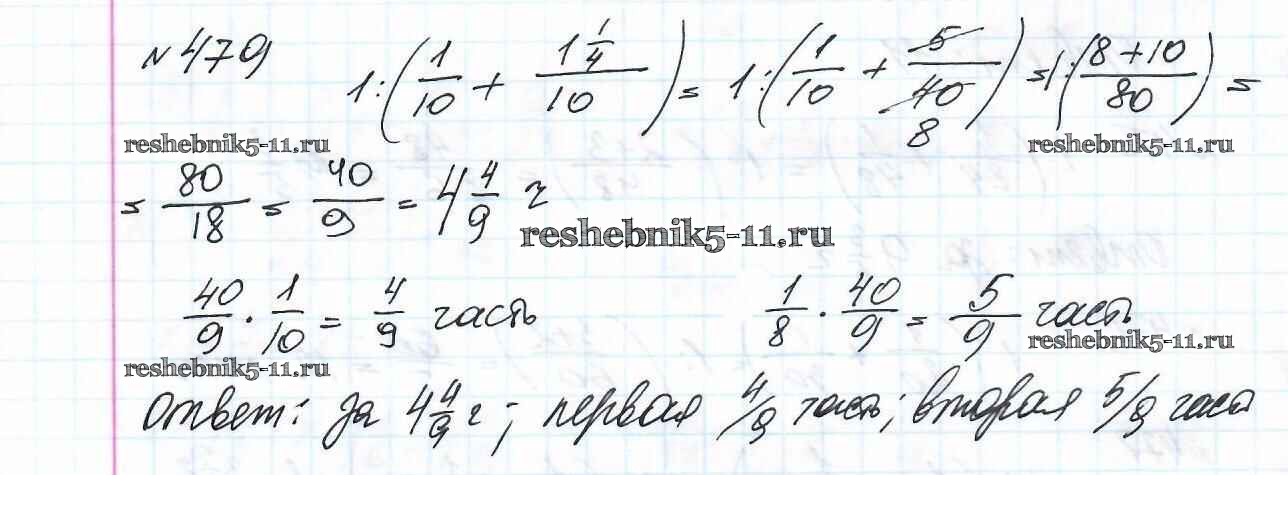 № 479 1:(1/10 + 1 1/4/10) = 1:(1/10 + 5/40 8) = 1:(8+10/80) =
reshebnik5-11.ru reshebnik5-11.ru
= 80/18 = 40/9 = 4 4/9 ч
reshebnik5-11.ru
40/9 · 1/10 = 4/9 часть 1/8 · 40/9 = 5/9 часть
reshebnik5-11.ru reshebnik5-11.ru
Ответ: за 4 4/9 ч; первая 4/9 часть; вторая 5/9 част